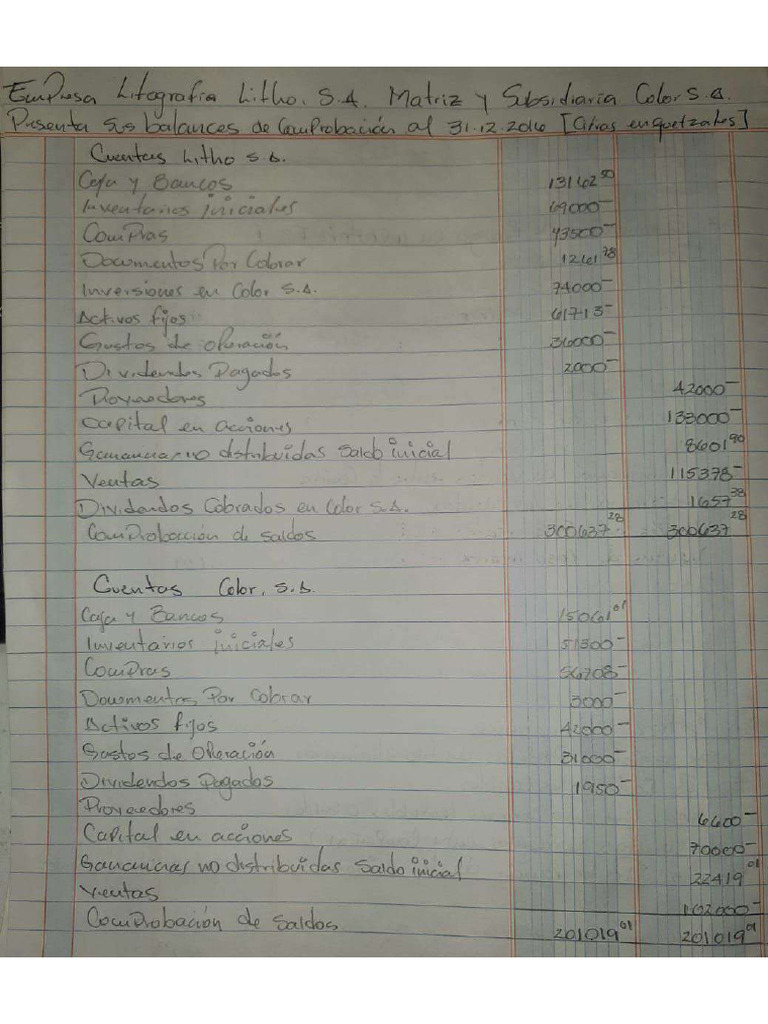 Empresa Litografia Litho. S.A. Matriz y Subsidiaria Color S.A.
Presenta sus balances de Comprobación al 31-12-2016 [Cifras en quetzales]
Cuentas Litho S.A.
Caja y Bancos 13162 50
Inventarios iniciales 69000-
Compras 43500-
Documentos Por Cobrar 1261 78
Inversiones en Color S.A. 74000-
Activos fijos 61713-
Gastos de operación 36000-
Dividendos Pagados 2000-
Proveedores 42000-
Capital en acciones 133000-
Ganancias no distribuidas saldo inicial 8601 90
Ventas 115378-
Dividendos Cobrados en Color S.A. 1657 38
Comprobación de saldos 300637 28 300637 28
Cuentas Color, S.A.
Caja y Bancos 15061 01
Inventarios iniciales 51300-
Compras 56708-
Documentos Por Cobrar 3000-
Activos fijos 42000-
Gastos de Operación 31000-
Dividendos Pagados 1950-
Proveedores 6600-
Capital en acciones 70000-
Ganancias no distribuidas Saldo inicial 22419 01
Ventas 102000-
Comprobación de Saldos 201019 01 201019 01